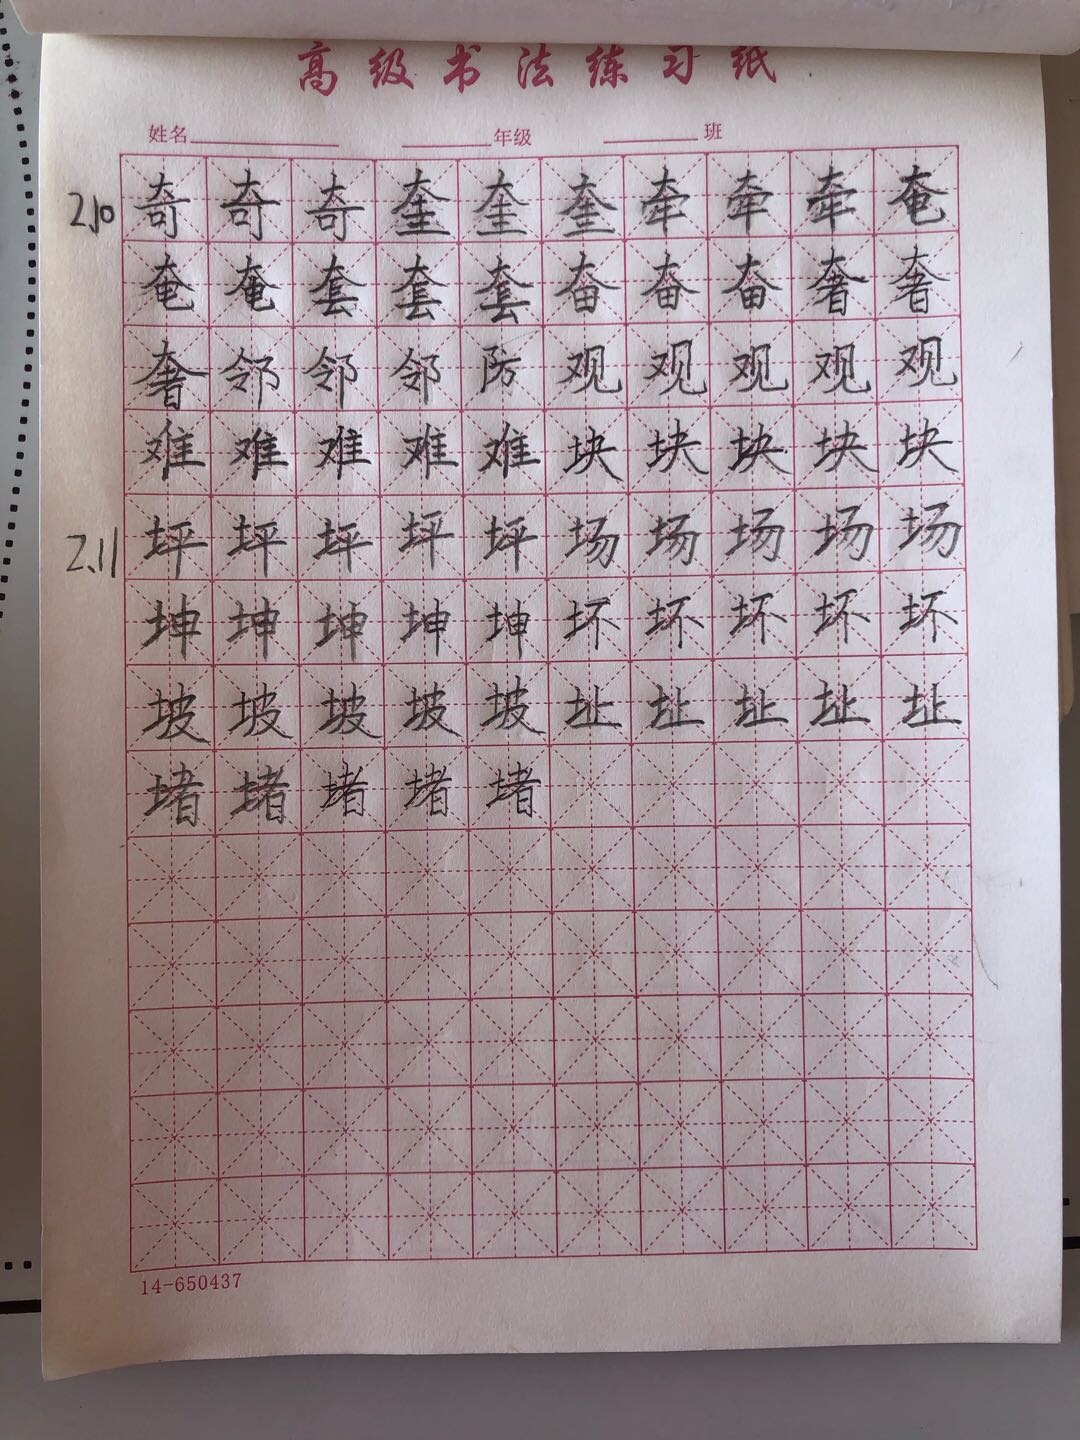 高级书法练习纸
姓名 年级 班
2.10 奇奇奇奎奎奎牵牵牵奄
奄奄套套套奋奋奋奢奢
奢邻邻邻防观观观观观
难难难难难块块块块块
2.11 坪坪坪坪坪场场场场场
坤坤坤坤坤坏坏坏坏坏
坡坡坡坡坡址址址址址
堵堵堵堵堵
14-650437